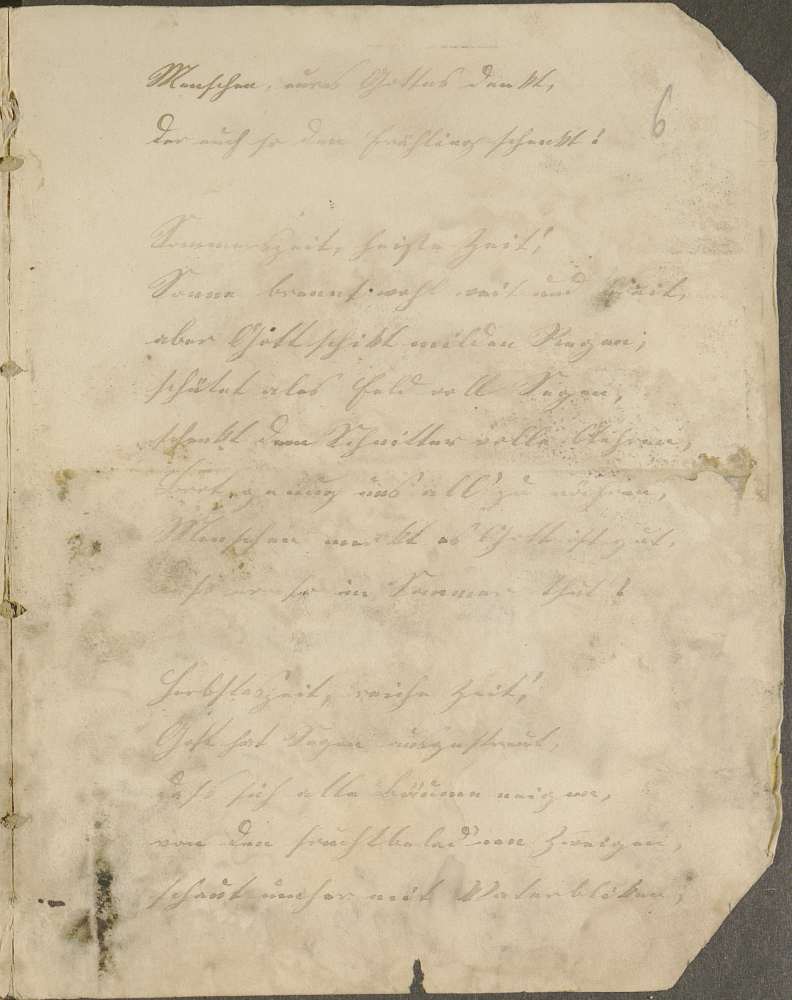 Menschen, eures Gottes denkt,
der euch so den Frühling schenkt!
6
Sommerszeit, heiße Zeit!
Sonne brennt wohl weit und breit,
aber Gott schikt milden Regen,
schütet ales Feld voll Segen,
schenkt dem Schnitter volle Aehren,
Brot genung uns all' zu nähren,
Menschen merkt es Gott ist gut,
so im Sommer thut!
Herbsteszeit, reiche Zeit!
Gott hat Segen ausgestreut,
daß sich alle Bäume neigen,
von den fruchtbelad'nen Zweigen,
schaut umher mit Vaterbliken,